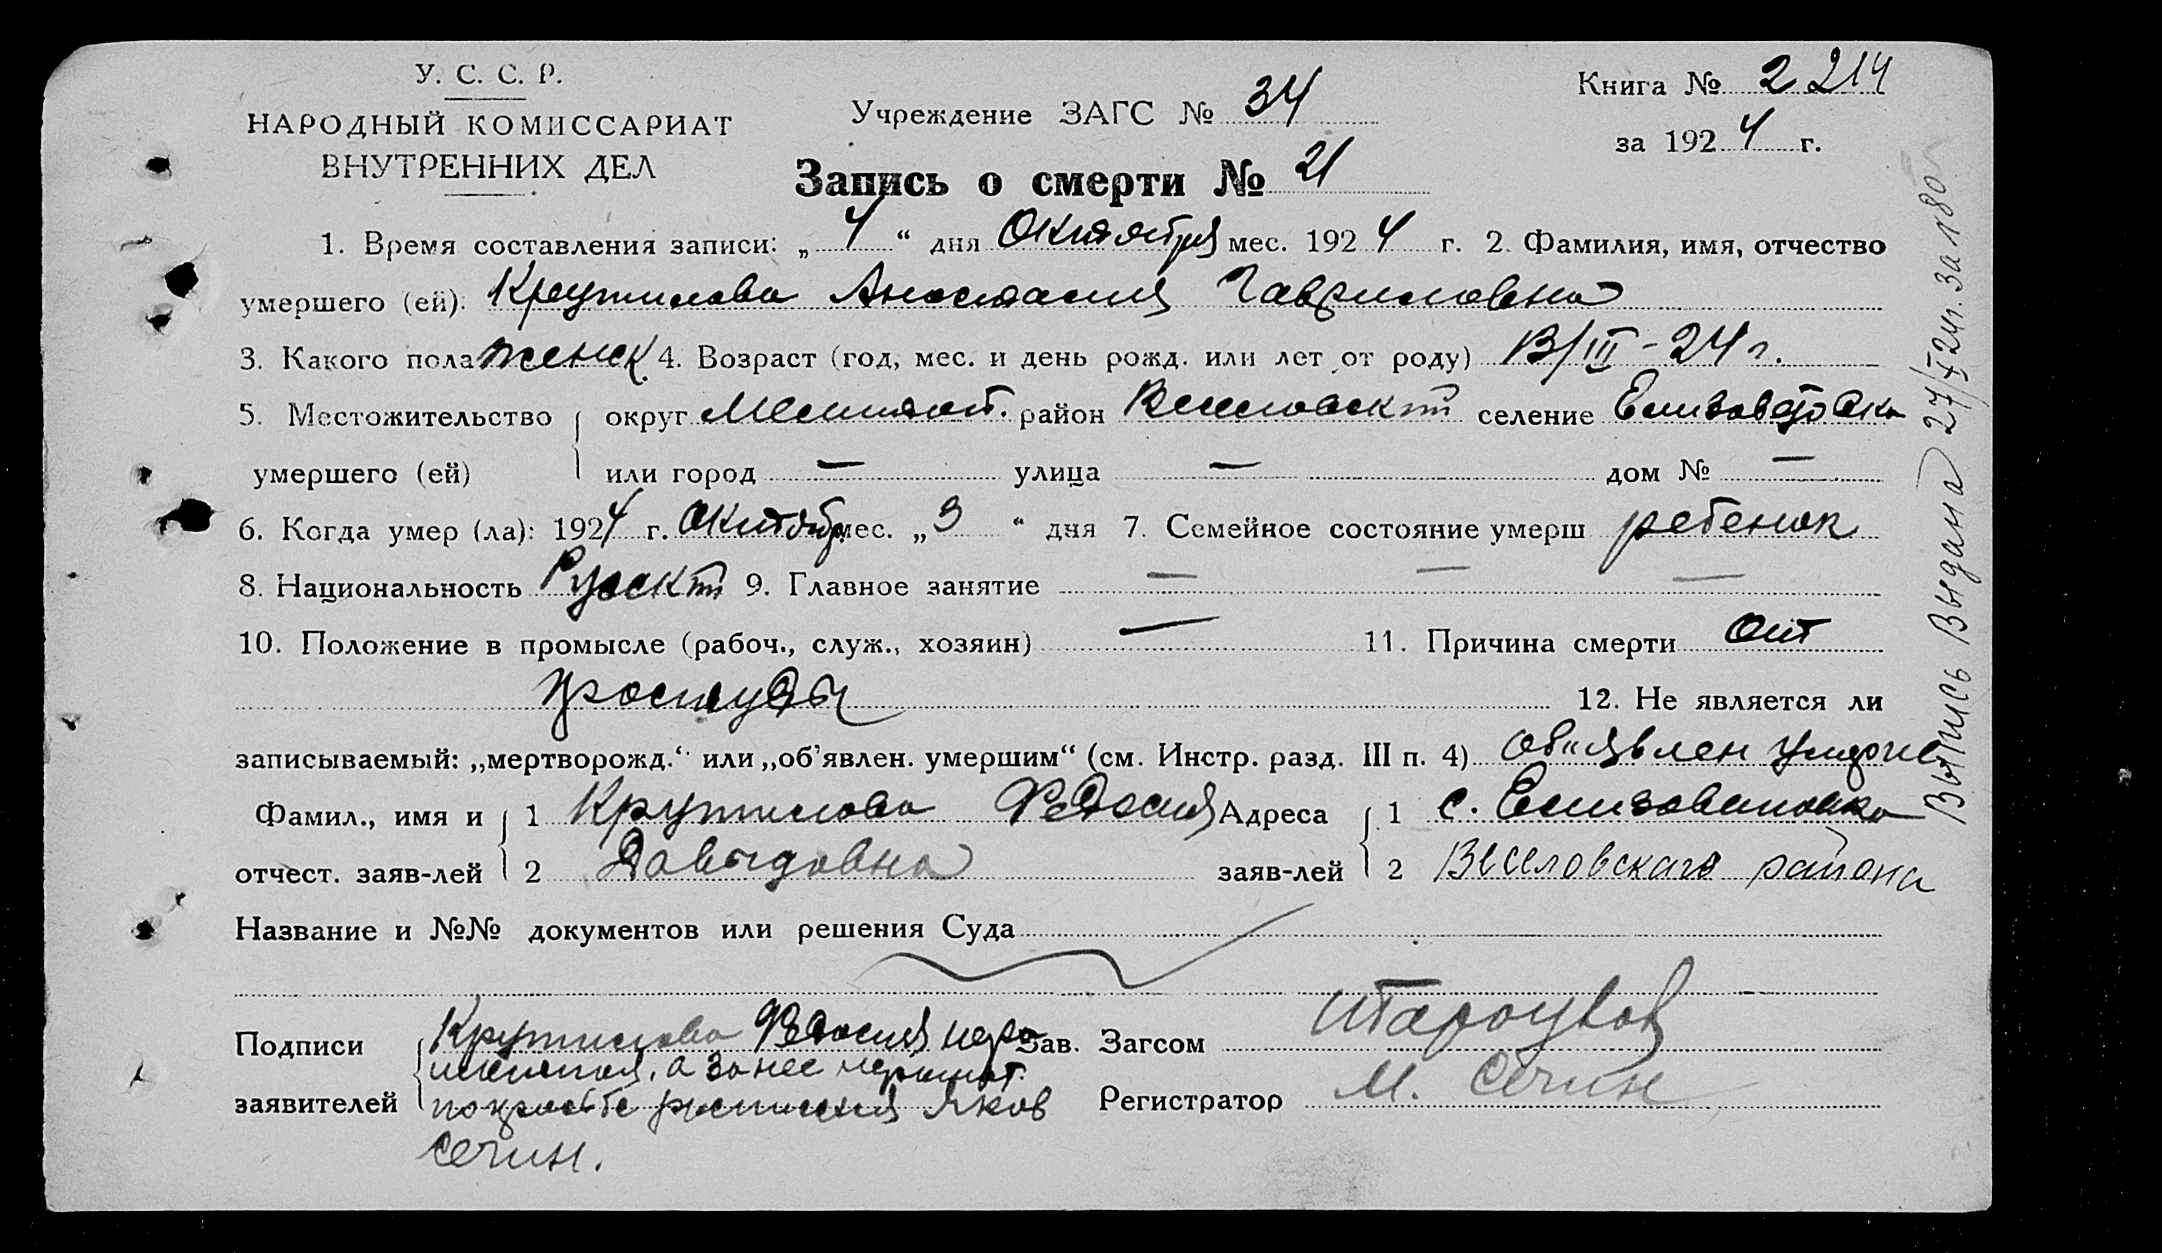 У. С. С. Р.
НАРОДНЫЙ КОМИССАРИАТ
ВНУТРЕННИХ ДЕЛ
Учреждение ЗАГС № 34
Книга № 2 214
за 1924 г.
Запись о смерти № 21
1. Время составления записи: „4“ дня Октября мес. 1924 г. 2. Фамилия, имя, отчество
умершего (ей): Крутилова Анастасия Гавриловна
3. Какого пола женск 4. Возраст (год, мес. и день рожд. или лет от роду) 13/III - 24 г.
5. Местожительство округ Мелитоп. район Веселовский селение Елизаветовка
умершего (ей) или город — улица — дом № —
6. Когда умер (ла): 1924 г. Октябр мес. „3“ дня 7. Семейное состояние умерш ребенок
8. Национальность Руский 9. Главное занятие — — —
10. Положение в промысле (рабоч., служ., хозяин) — 11. Причина смерти От
простуды 12. Не является ли
записываемый: „мертворожд.“ или „об'явлен. умершим“ (см. Инстр. разд. III п. 4) об"явлен
Фамил., имя и 1 Крутилова Федосия Адреса 1 с. Елизаветовка
отчест. заяв-лей 2 Давыдовна заяв-лей 2 Веселовскаго района
Название и №№ документов или решения Суда
Подписи Крутилова Федосия Зав. Загсом
а за нее неграмот.
заявителей по прозьбе Яков Регистратор М. Сечин
Сечин.
Выпись Выдана 27/X 24г. за № 80